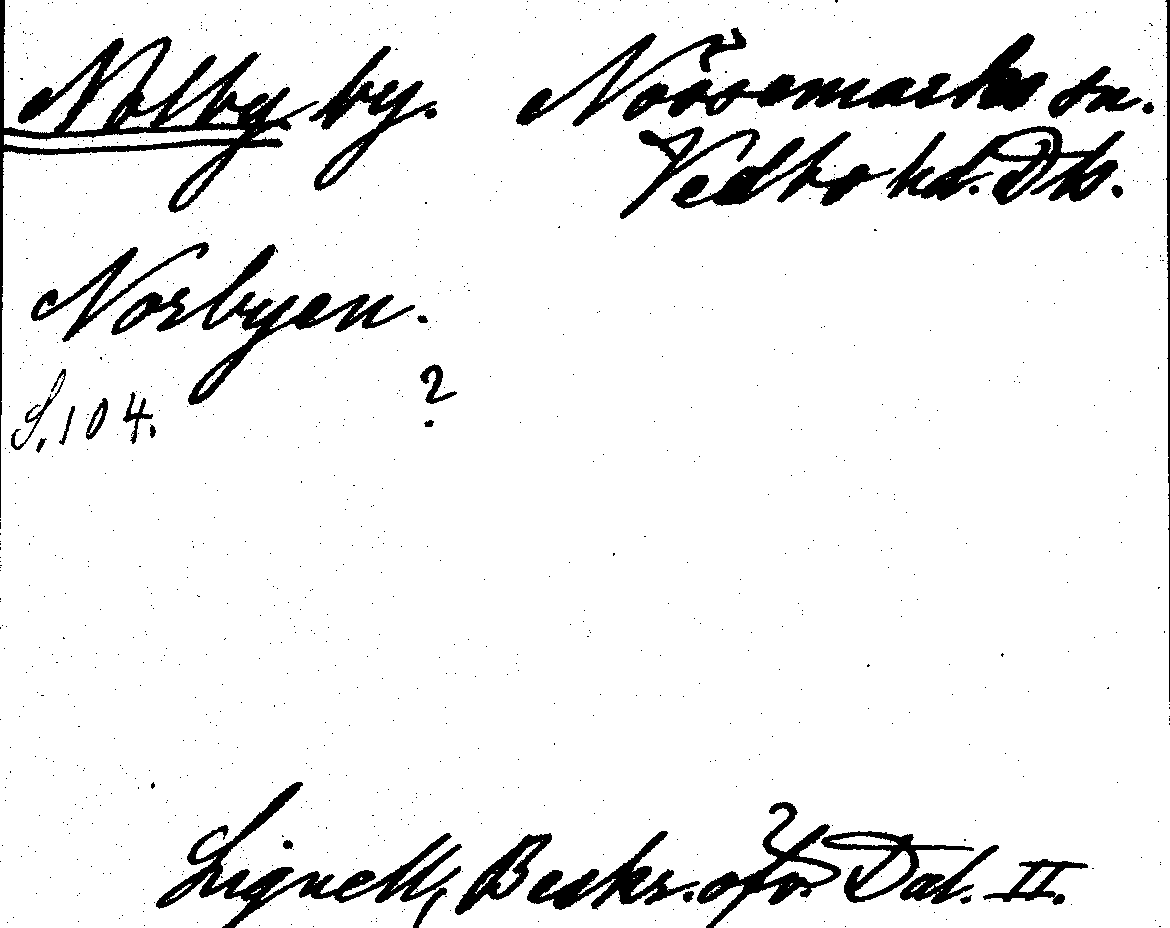 Nolby by. Nössemarks sn.
Vedbo hd. Dls.
Norbyen.
S. 104. ?
Lignell, Beskr. öfv. Dal. II.